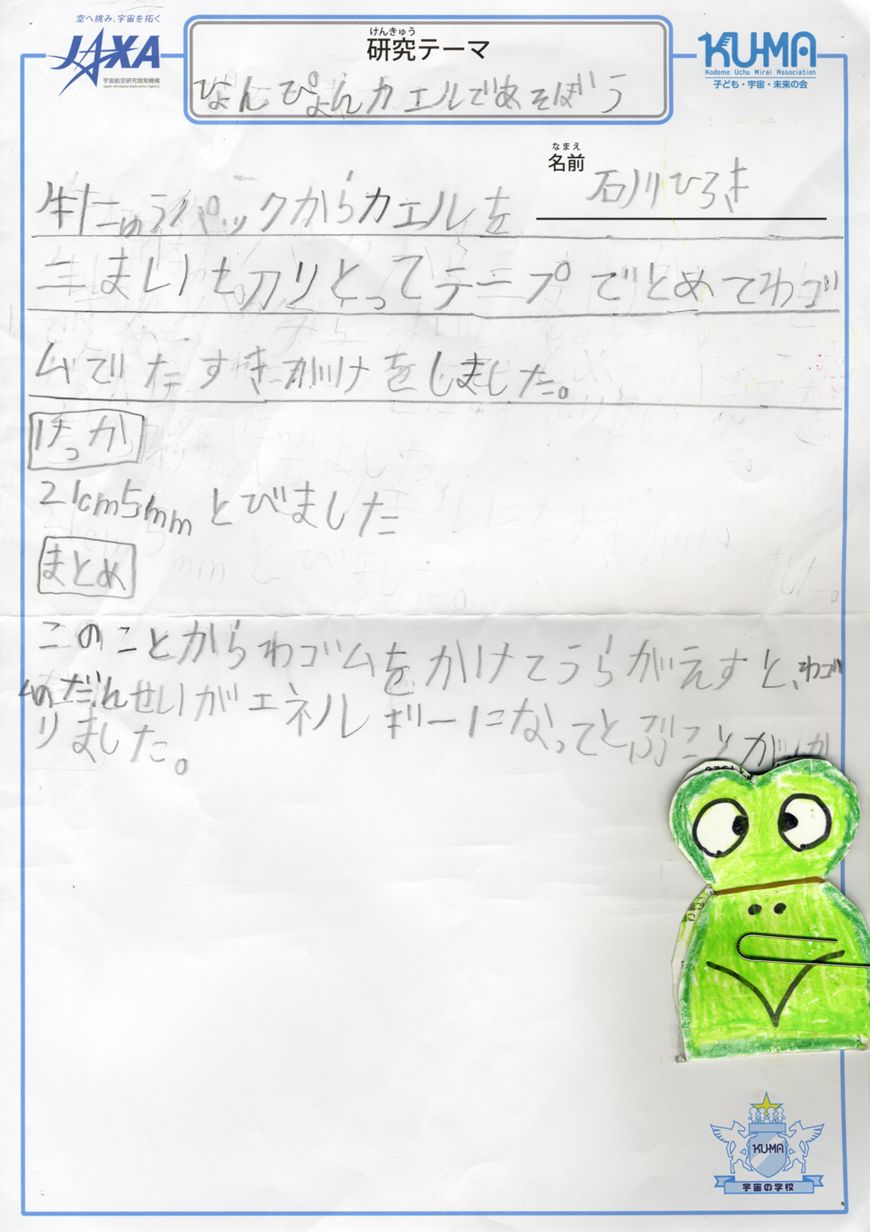 空へ挑み、宇宙を拓く
JAXA
宇宙航空研究開発機構
Japan Aerospace Exploration Agency
けんきゅう
研究テーマ
ぴょんぴょんカエルであそぼう
KU-MA
Kodomo Uchu Mirai Association
子ども・宇宙・未来の会
なまえ
名前
石川ひろき
牛にゅうパックからカエルを
二まい切りとってテープでとめてわゴ
ムでたすきがけをしました。
けっか
21cm5mmとびました
まとめ
このことからわゴムをかけてうらがえすと、わゴ
ムのだんせいがエネルギーになってとぶことがわか
りました。
KU-MA
宇宙の学校